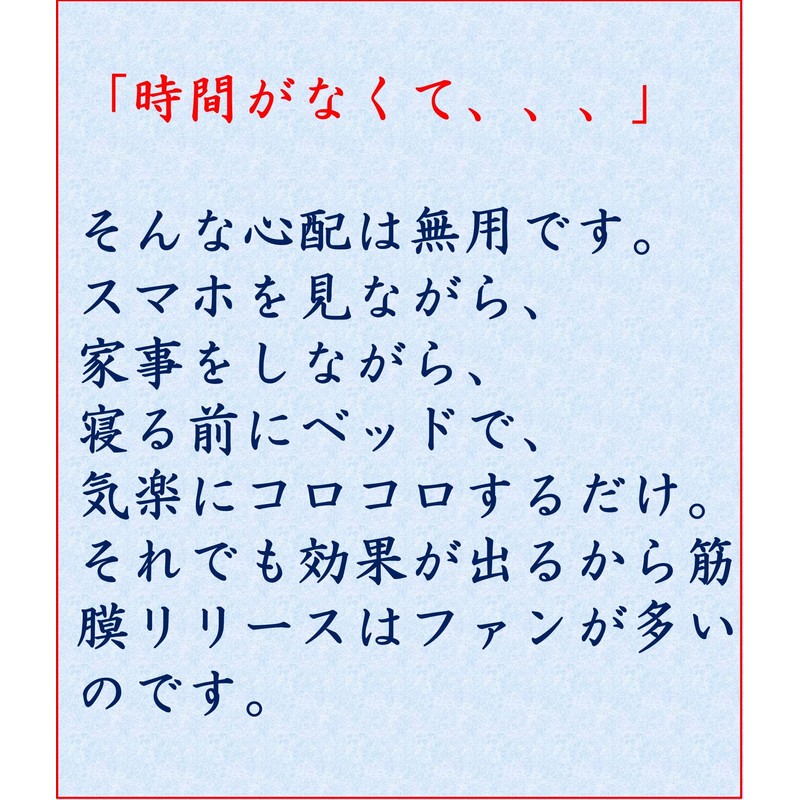 「時間がなくて、、、」
そんな心配は無用です。
スマホを見ながら、
家事をしながら、
寝る前にベッドで、
気楽にコロコロするだけ。
それでも効果が出るから筋
膜リリースはファンが多い
のです。